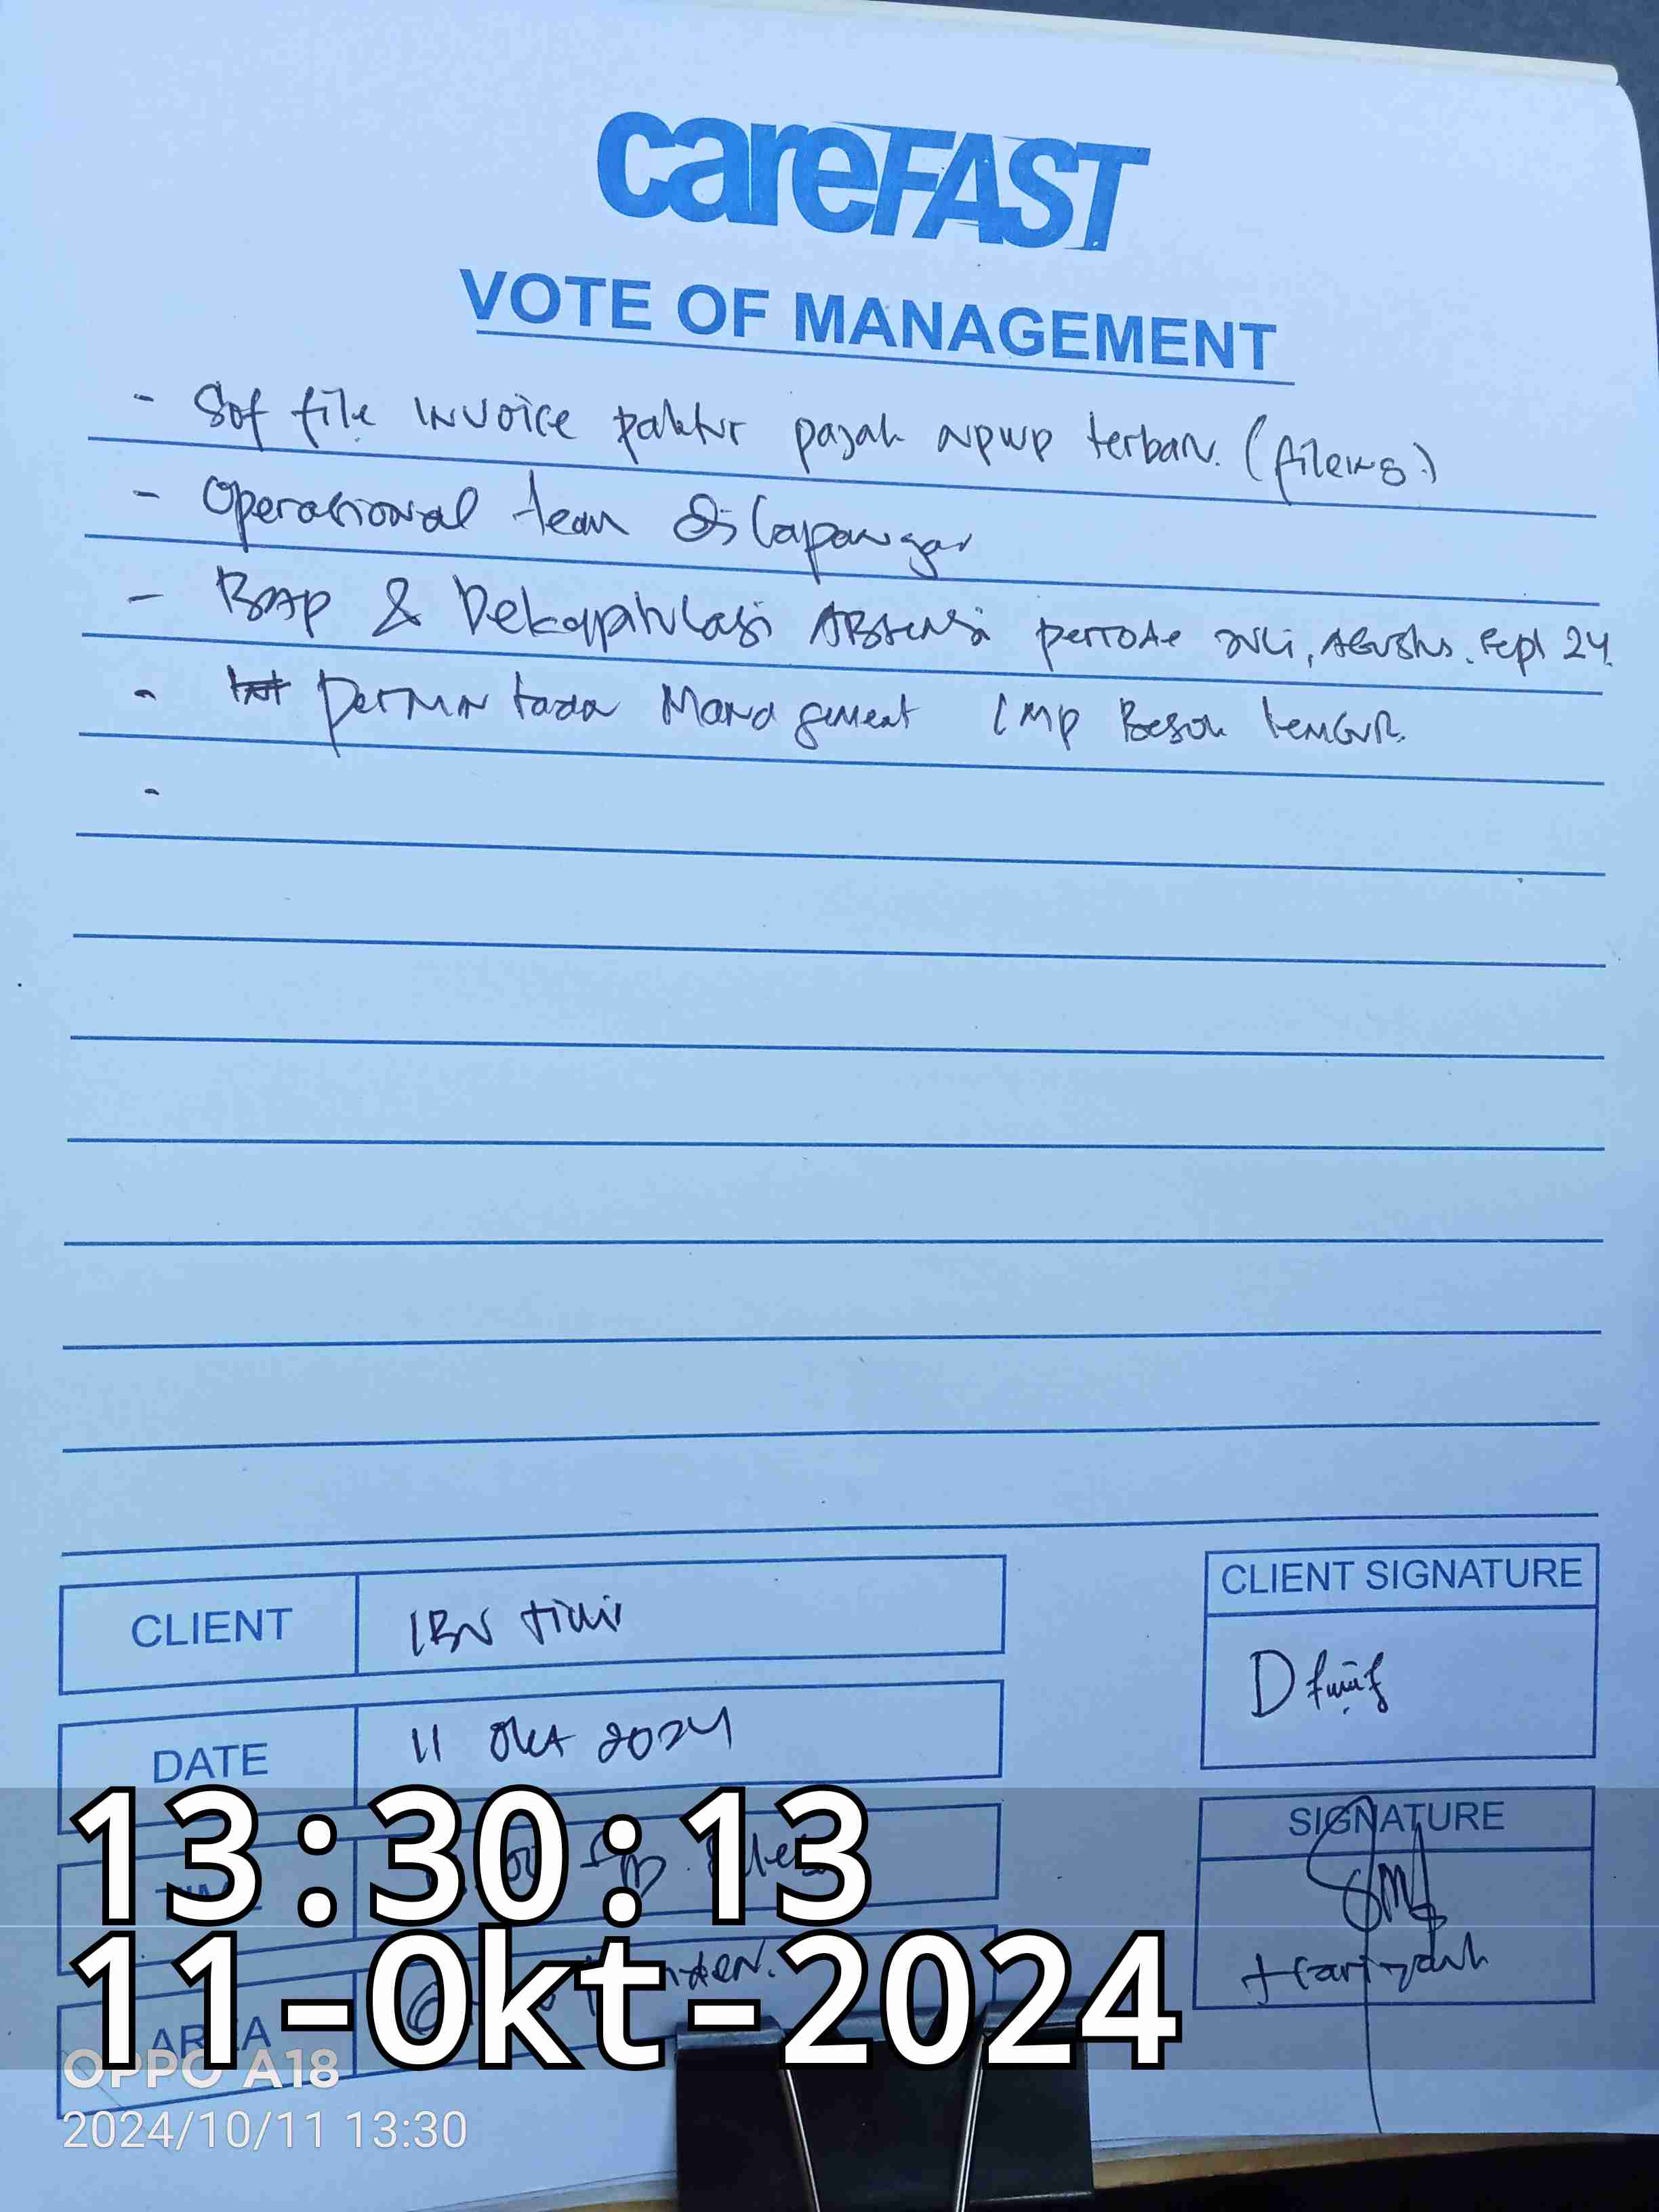 careFAST
VOTE OF MANAGEMENT
- Sof file invoice paktur pajak NPWP terbaru. (fileing.)
- Operasional team di lapangan
- BAP & Dekapitulasi ABSENSI periode Juli, Agustus. Sept 24.
- Permintaan Management IMP Besok
-
CLIENT
CLIENT SIGNATURE
DATE 11 Okt 2024
SIGNATURE
13:30:13
11-Okt-2024
AREA
OPPO A18
2024/10/11 13:30